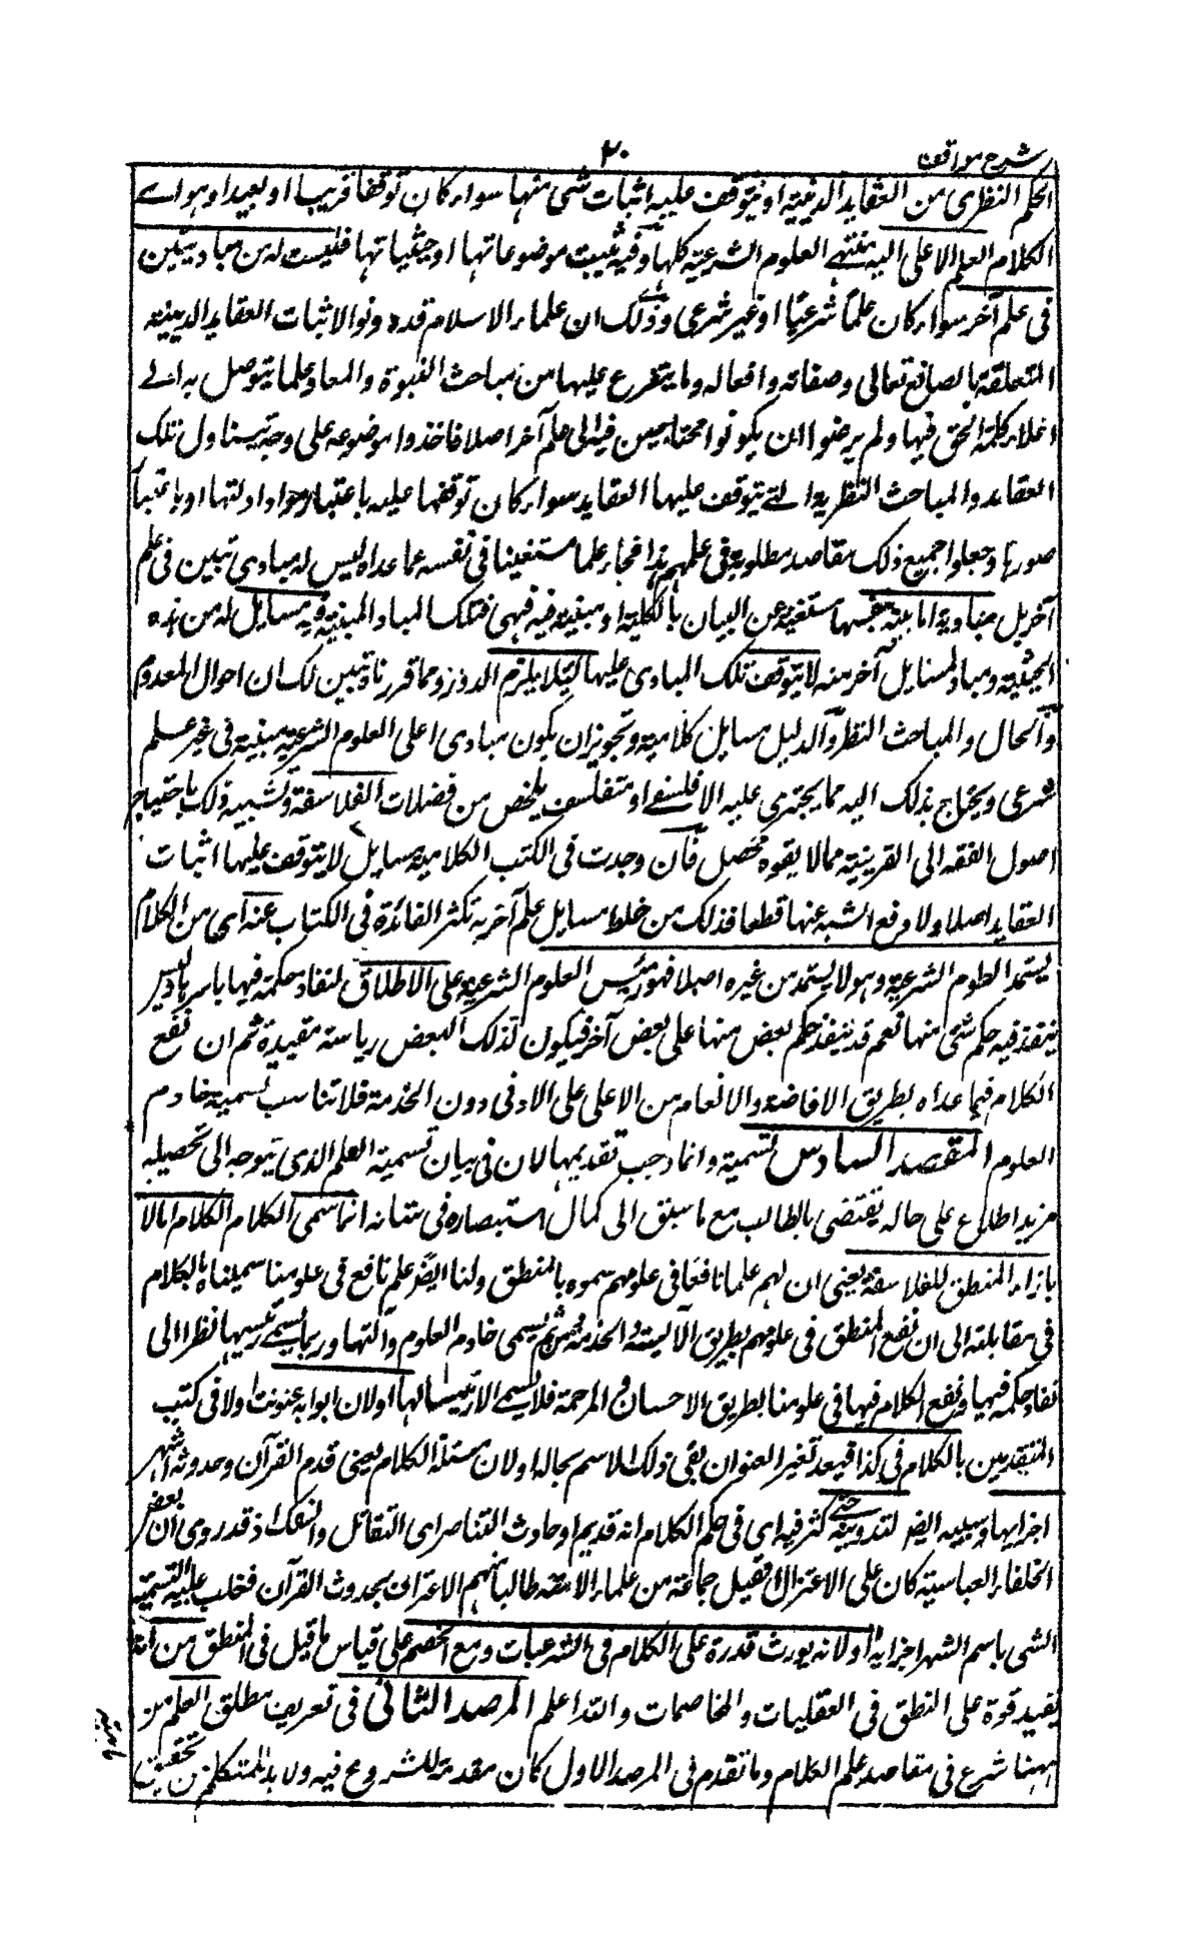 شرح مواقف
۲۰
الحكم النظرى من العقايد الدينية او يتوقف عليه اثبات شى منها سواء كان توقفا قريبا او بعيدا وهو اے
الكلام العلم الاعلى اليه ينتهے العلوم الشرعية كلها وفيه يثبت موضوعاتها او حيثياتها فليست له من مباد تبين
فى علم آخر سواء كان علما شرعيا او غير شرعى وذلك ان علماء الاسلام قد دونوا لاثبات العقايد الدينية
المتعلقة بالصانع تعالى وصفاته وافعاله وما يتفرع عليها من مباحث النبوة والمعاد علما يتوصل به الے
اعلاء كلمة الحق فيها ولم يرضوا ان يكونوا محتاجين فيه الى علم آخر اصلا فاخذوا موضوعه على وجه يتناول تلك
العقايد والمباحث النظرية التے يتوقف عليها العقايد سواء كان توقفها عليه باعتبار مواد ادلتها او باعتبار
صورها وجعلوا جميع ذلك مقاصد مطلوبة فى علمهم هذا فجاء علما مستغنيا فى نفسه عما عداه ليس له مبادى تبين فى علم
آخر بل مباديه اما بينة بنفسها مستغنية عن البيان بالكلية او مبينة فيه فهى فتلك المباد المبينة فيه مسايل له من هذه
الحيثية ومباد لمسايل آخر منه لا يتوقف تلك المبادى عليها لئلا يلزم الدور ومما قررناه تبين لك ان احوال المعدوم
والحال والمباحث النظر والدليل مسايل كلامية وتجويز ان يكون مبادى اعلى العلوم الشرعية مبينة فى غير علم
شرعى ويحتاج بذلك اليه مما يجترى عليه الا فلسفے او متفلسف يلحس من فضلات الفلاسفة وتشبيه ذلك باحتياج
اصول الفقه الى العربية مما لا يفوه محصل فان وجدت فى الكتب الكلامية مسايل لا يتوقف عليها اثبات
العقايد اصلا ولا دفع الشبه عنها قطعا فذلك من خلط مسايل علم آخر به تكثر الفائدة فى الكتاب عنه اى من الكلام
يستمد العلوم الشرعية وهو لا يستمد من غيره اصلا فهو رئيس العلوم الشرعية على الاطلاق لنفاذ حكمه فيها باسرها وليس
ينفذ فيه حكم شى منها نعم قد ينفذ حكم بعض منها على بعض آخر فيكون لذلك البعض رياسة مقيدة ثم ان نفع
الكلام فيما عداه بطريق الافاضة والانعام من الاعلى على الادنى دون الخدمة فلا تناسب تسميته خادم
العلوم المقصد السادس تسمية وانما وجب تقديمها لان فى بيان تسمية العلم الذى يتوجه الى تحصيله
مزيد اطلاع على حاله يقتضى بالطالب مع ما سبق الى كمال استبصاره فى شانه انما سمى الكلام الكلام اما لانه
بازاء المنطق للفلاسفة يعنى ان لهم علما نافعا فى علومهم سموه بالمنطق ولنا ايضا علم نافع فى علومنا سميناه بالكلام
فى مقابلته الى ان نفع المنطق فى علومهم بطريق الآلية والخدمة ومن ثم يسمى خادم العلوم وآلتها وربما يسمے رئيسها نظرا الى
نفاذ حكمه فيها ونفع الكلام فيها فى علومنا بطريق الاحسان والمرحمة فلا يسمے الا رئيسا لها او لان ابوابه عنونت اولا فى كتب
المتقدمين بالكلام فى كذا فبعد تغير العنوان بقى ذلك الاسم بحاله او لان مسئلة الكلام يعنى قدم القرآن وحدوثه اشهر
اجزايها وسببه ايضا لتدوينه حتے كثر فيه اى فى حكم الكلام انه قديم او حادث التناصر اى التقاتل والسفك اذ قد روى ان بعض
الخلفاء العباسية كان على الاعتزال فقيل جماعة من علماء الامة طالبا منهم الاعتراف بحدوث القرآن فغلب عليه التسمية
الشى باسم اشهر اجزايه او لانه يورث قدرة على الكلام فى الشرعيات ومع الخصم على قياس ما قيل فى المنطق من انه
يفيد قوة على النطق فى العقليات والمخاصمات والله اعلم المرصد الثانى فى تعريف مطلق العلم من
ههنا شرع فى مقاصد علم الكلام وما تقدم فى المرصد الاول كان مقدمة للشروع فيه ولا بد للمتكلم من تحقيق